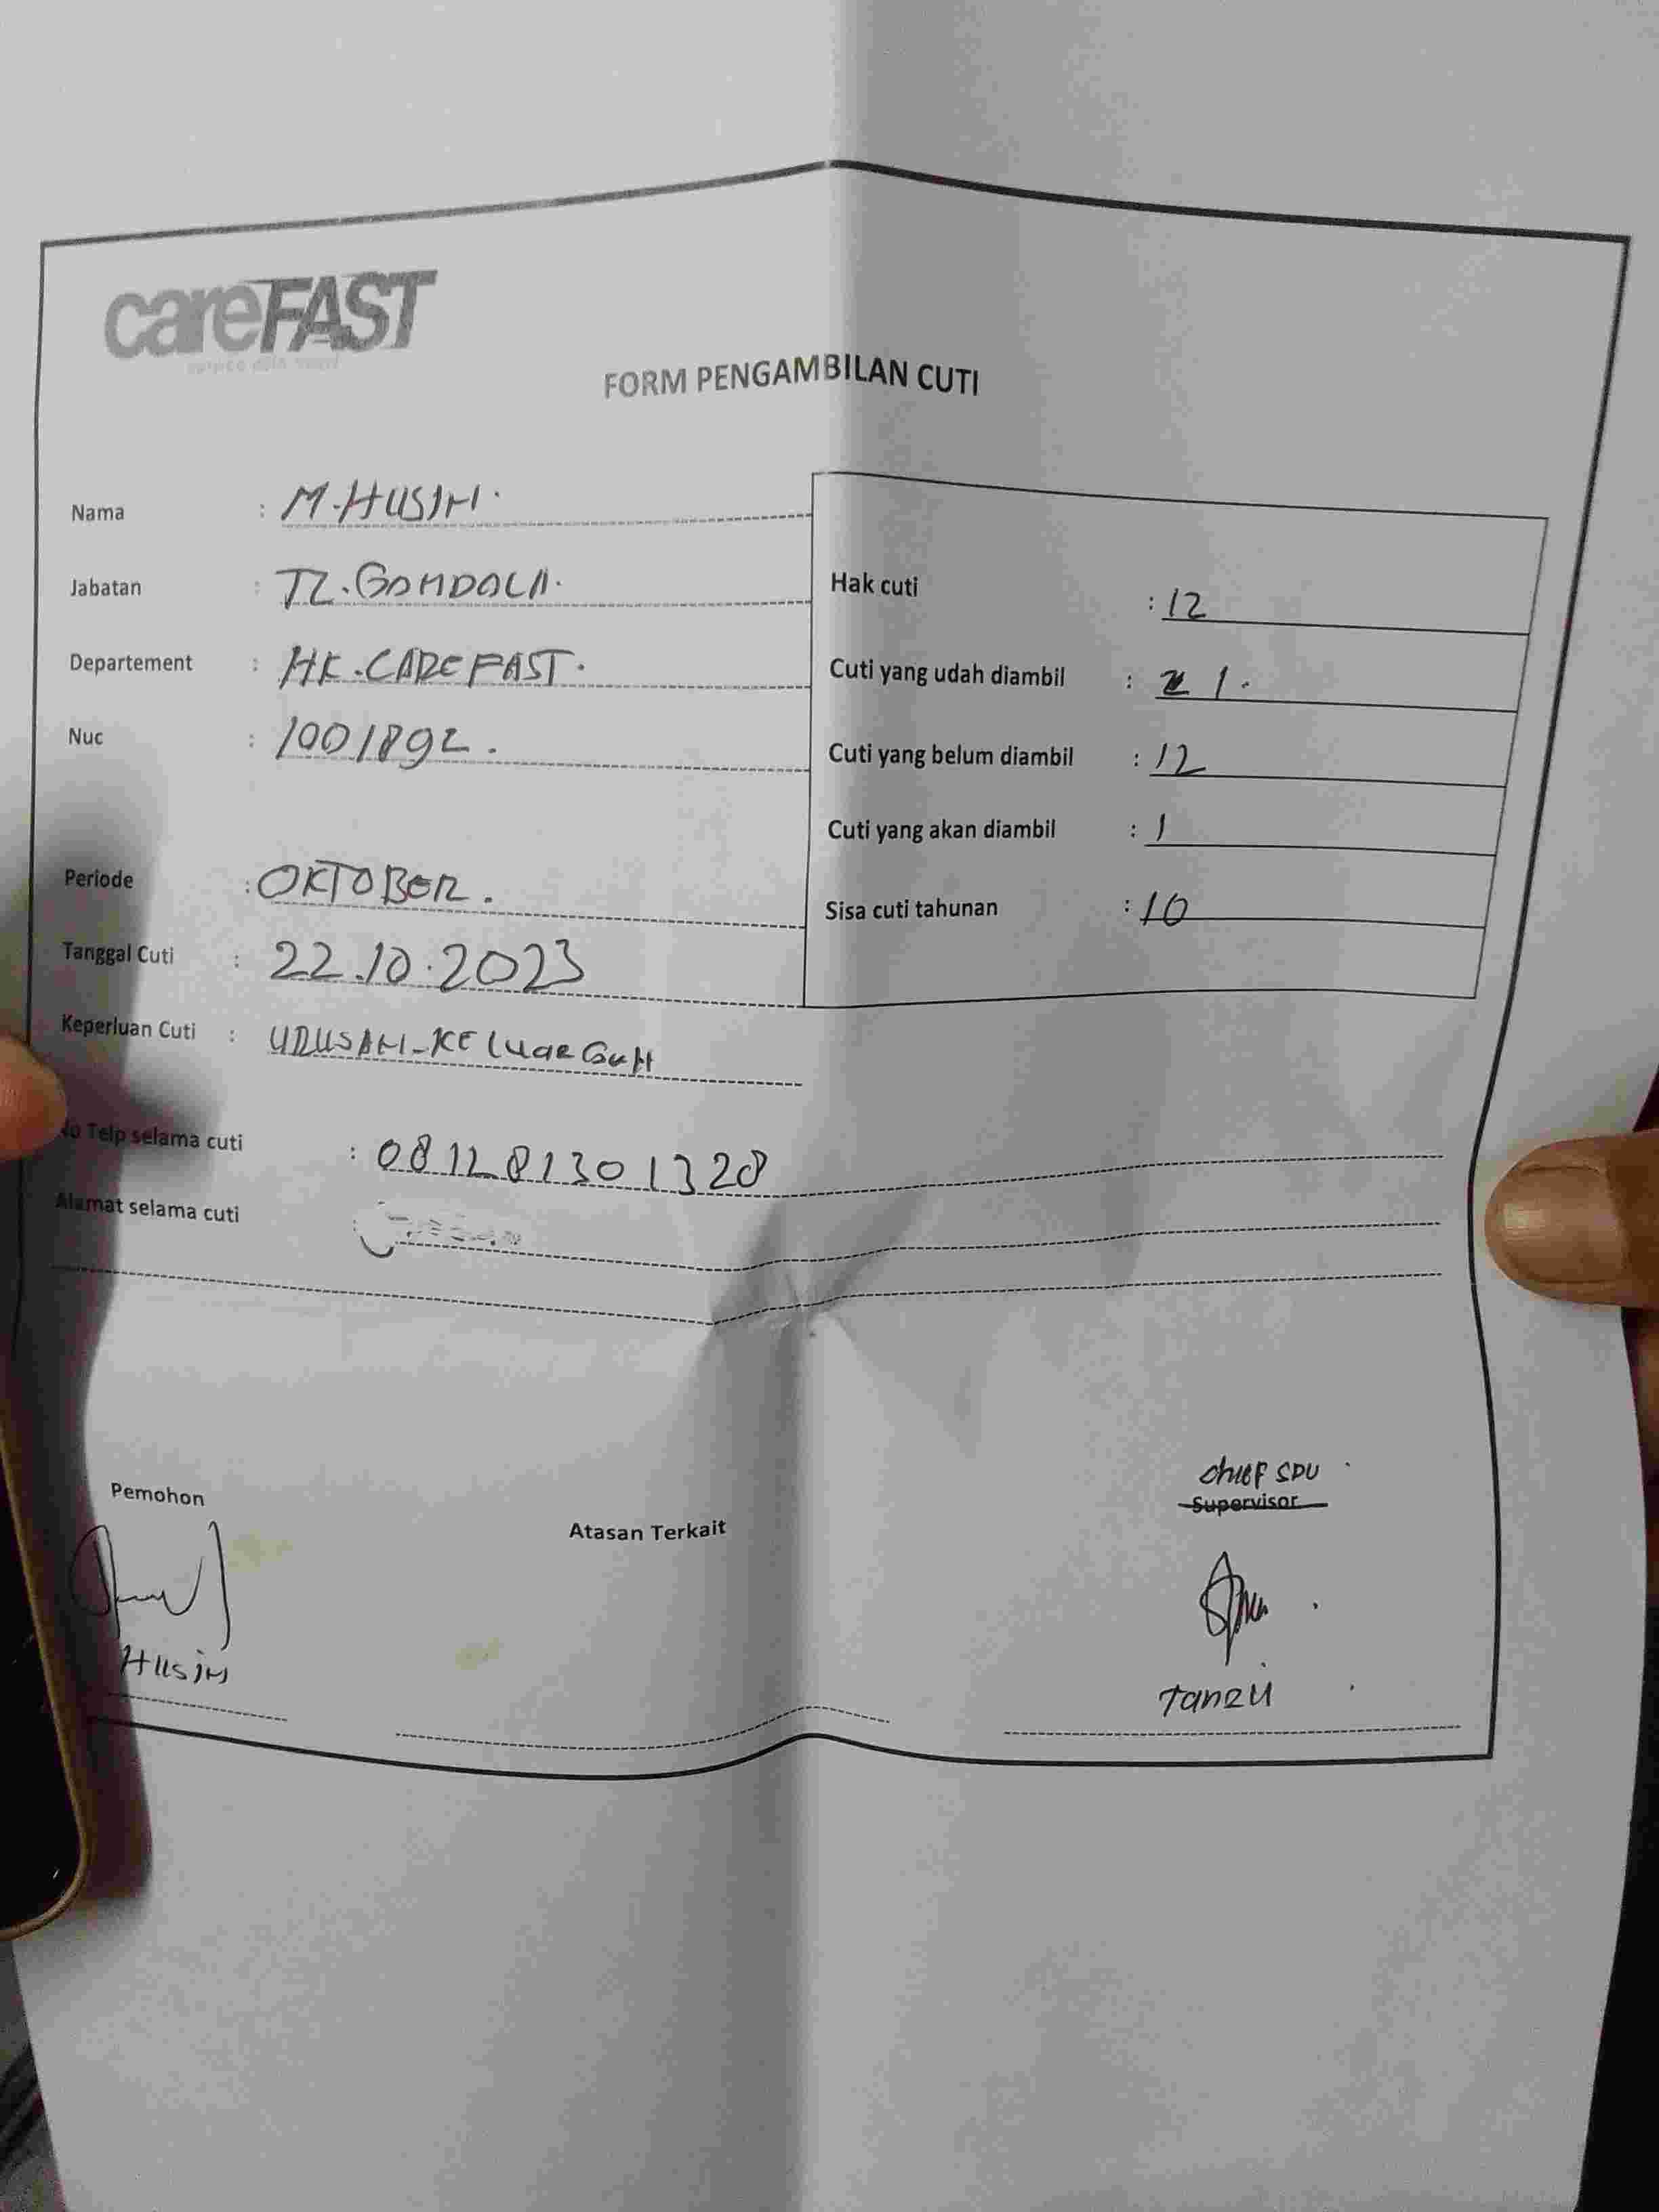 careFAST
FORM PENGAMBILAN CUTI
Nama : M.HUSIN.
Jabatan : TL.GONDOLA.
Departement : HK.CAREFAST.
Nuc : 1001892.
Periode : OKTOBER.
Tanggal Cuti : 22.10.2023
Keperluan Cuti : URUSAN-KELUARGAN
Hak cuti : 12
Cuti yang udah diambil : 1.
Cuti yang belum diambil : 12
Cuti yang akan diambil : 1
Sisa cuti tahunan : 10
No Telp selama cuti : 081281301328
Alamat selama cuti :
Pemohon
Husin
Atasan Terkait
chief SPV
Supervisor